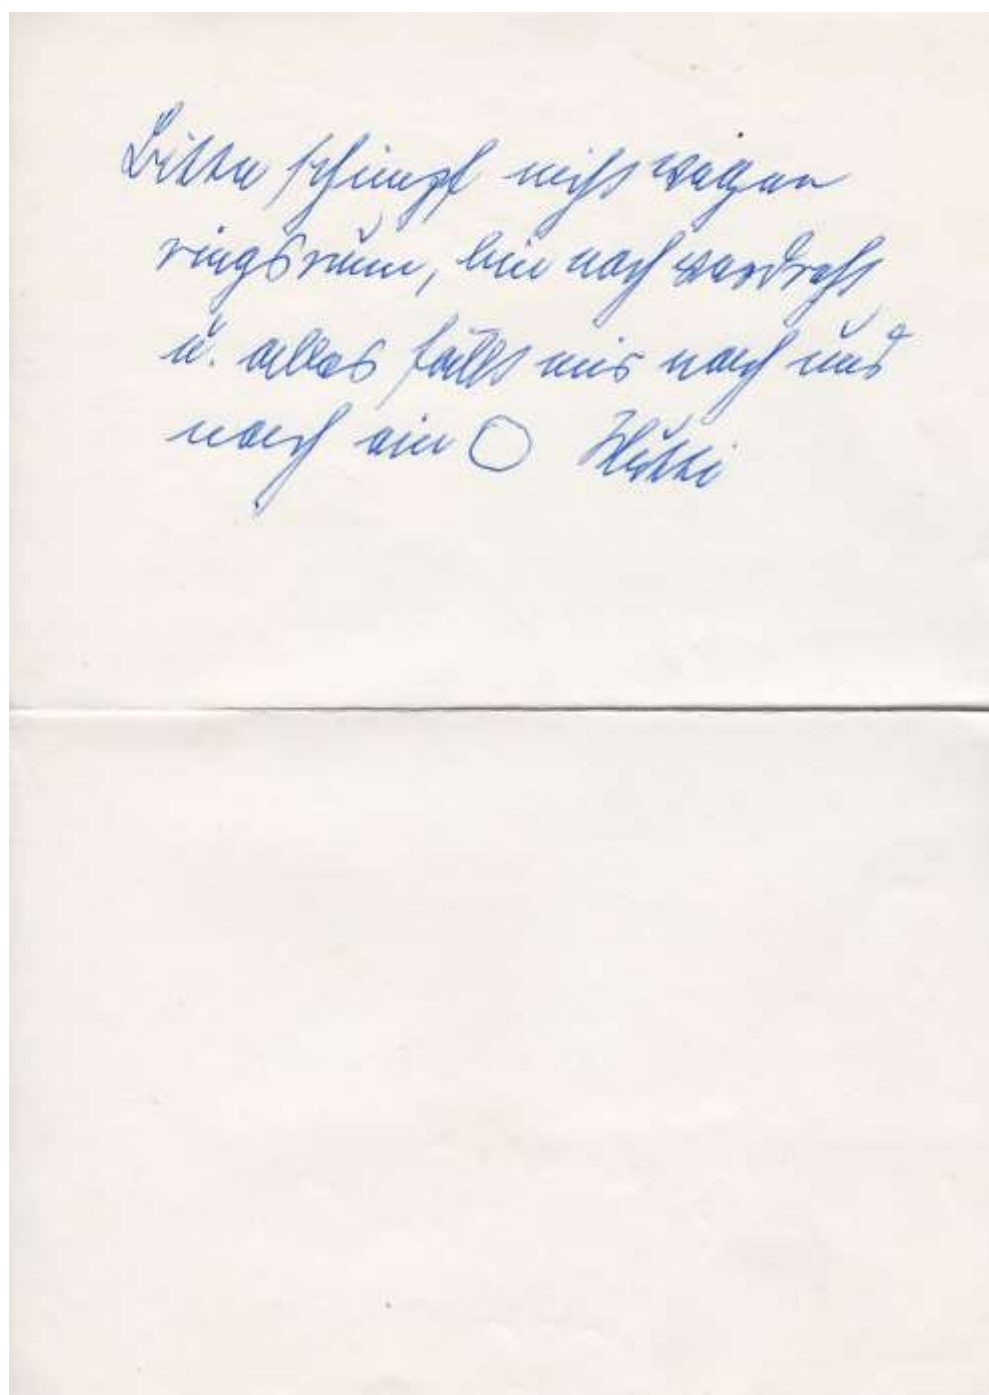 Bitte schimpf nicht wegen
ringsrum, bin noch verdreht
u. alles fällt mir nach und
nach ein Mutti